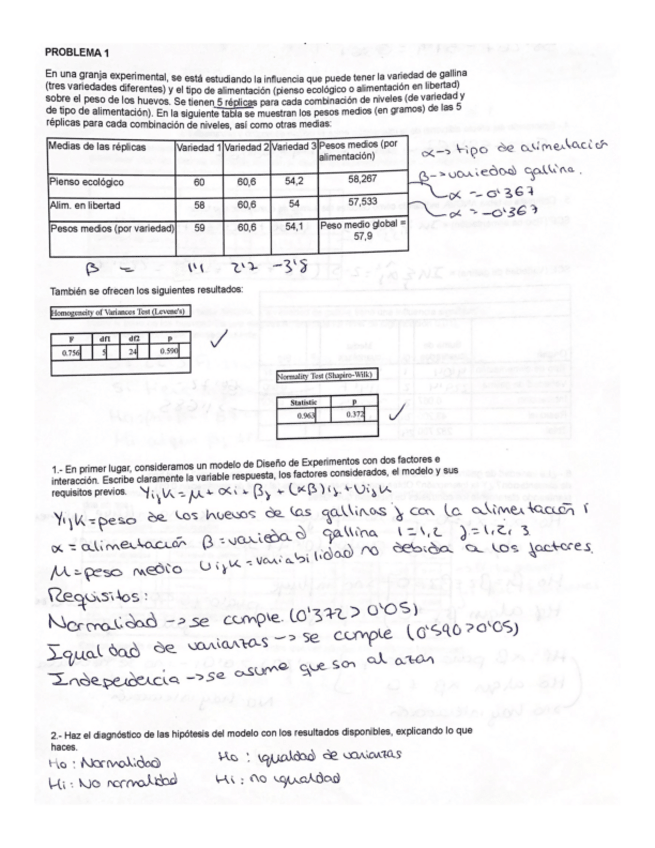 PROBLEMA 1
En una granja experimental, se está estudiando la influencia que puede tener la variedad de gallina
(tres variedades diferentes) y el tipo de alimentación (pienso ecológico o alimentación en libertad)
sobre el peso de los huevos. Se tienen 5 réplicas para cada combinación de niveles (de variedad y
de tipo de alimentación). En la siguiente tabla se muestran los pesos medios (en gramos) de las 5
réplicas para cada combinación de niveles, así como otras medias:
Medias de las réplicas Variedad 1 Variedad 2 Variedad 3 Pesos medios (por alimentación)
α -> tipo de alimentación
β -> variedad gallina.
Pienso ecológico 60 60,6 54,2 58,267
α = 0'367
Alim. en libertad 58 60,6 54 57,533
α = -0'367
Pesos medios (por variedad) 59 60,6 54,1 Peso medio global = 57,9
β = 1'1 2'7 -3'8
También se ofrecen los siguientes resultados:
Homogeneity of Variances Test (Levene's)
F df1 df2 p
0.756 5 24 0.590
Normality Test (Shapiro-Wilk)
Statistic p
0.963 0.372
1.- En primer lugar, consideramos un modelo de Diseño de Experimentos con dos factores e
interacción. Escribe claramente la variable respuesta, los factores considerados, el modelo y sus
requisitos previos. YijK = μ + αi + βj + (αβ)ij + UijK
YijK = peso de los huevos de las gallinas j con la alimentación i
α = alimentación β = variedad gallina i=1,2 j=1,2,3
μ = peso medio UijK = variabilidad no debida a los factores.
Requisitos:
Normalidad -> se cumple (0'372 > 0'05)
Igualdad de varianzas -> se cumple (0'590 > 0'05)
Independencia -> se asume que son al azar
2.- Haz el diagnóstico de las hipótesis del modelo con los resultados disponibles, explicando lo que
haces.
Ho: Normalidad Ho: igualdad de varianzas
Hi: No normalidad Hi: no igualdad